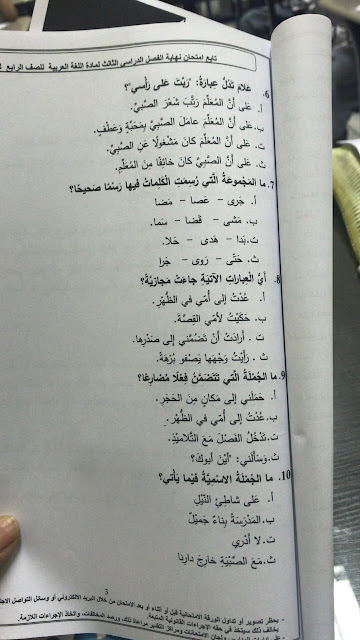 تابع امتحان نهاية الفصل الدراسي الثالث لمادة اللغة العربية للصف الرابع
6. عَلامَ تَدُلُّ عِبارَةُ: "رَبَّتَ عَلى رَأسي"؟
أ. عَلى أَنَّ المُعَلِّمَ رَتَّبَ شَعْرَ الصَّبِيِّ.
ب. عَلى أَنَّ المُعَلِّمَ عامَلَ الصَّبِيَّ بِمَحَبَّةٍ وَعَطْفٍ.
ت. عَلى أَنَّ المُعَلِّمَ كانَ مَشْغولًا عَنِ الصَّبِيِّ.
ث. عَلى أَنَّ الصَّبِيَّ كانَ خائِفًا مِنَ المُعَلِّمِ.
7. ما المَجْموعَةُ الَّتي رُسِمَتِ الكَلِماتُ فيها رَسْمًا صَحيحًا؟
أ. جَرى – عَصا – مَضا
ب. مَشى – قَضا – سَما.
ت. بَدا – هَدى – خَلا.
ث. حَتّى – رَوى – جَرا
8. أَيُّ العِباراتِ الآتِيَةِ جاءَتْ مَجازِيَّةً؟
أ. عُدْتُ إِلى أُمّي في الظُّهْرِ.
ب. حَكَيْتُ لأُمّي القِصَّةَ.
ت. أَرادَتْ أَنْ تَضُمَّني إِلى صَدْرِها.
ث. رَأَيْتُ وَجْهَها يَصْفو بُرْهَةً.
9. ما الجُمْلَةُ الَّتي تَتَضَمَّنُ فِعْلًا مُضارِعًا؟
أ. حَمَلَني إِلى مَكانٍ مِنَ الحَجَرِ.
ب. عُدْتُ إِلى أُمّي في الظُّهْرِ.
ت. تَدْخُلُ الفَصْلَ مَعَ التَّلاميذِ.
ث. وَسَأَلَني: "أَيْنَ أَبوكَ؟
10. ما الجُمْلَةُ الاسْمِيَّةُ فيما يَأْتي؟
أ. عَلى شاطِئِ النّيلِ
ب. المَدْرَسَةُ بِناءٌ جَميلٌ
ت. لا أَدْري
ث. مَعَ الصِّبْيَةِ خارِجَ دارِنا
3
- يحظر تصوير أو تداول الورقة الامتحانية قبل أو أثناء أو بعد الامتحان من خلال البريد الالكتروني أو وسائل التواصل
يخالف ذلك سيتخذ في حقه الإجراءات القانونية المتبعة.
الامتحانات ومراكز التقدير مراعاة ذلك، ورصد المخالفات، واتخاذ الإجراءات اللازمة.